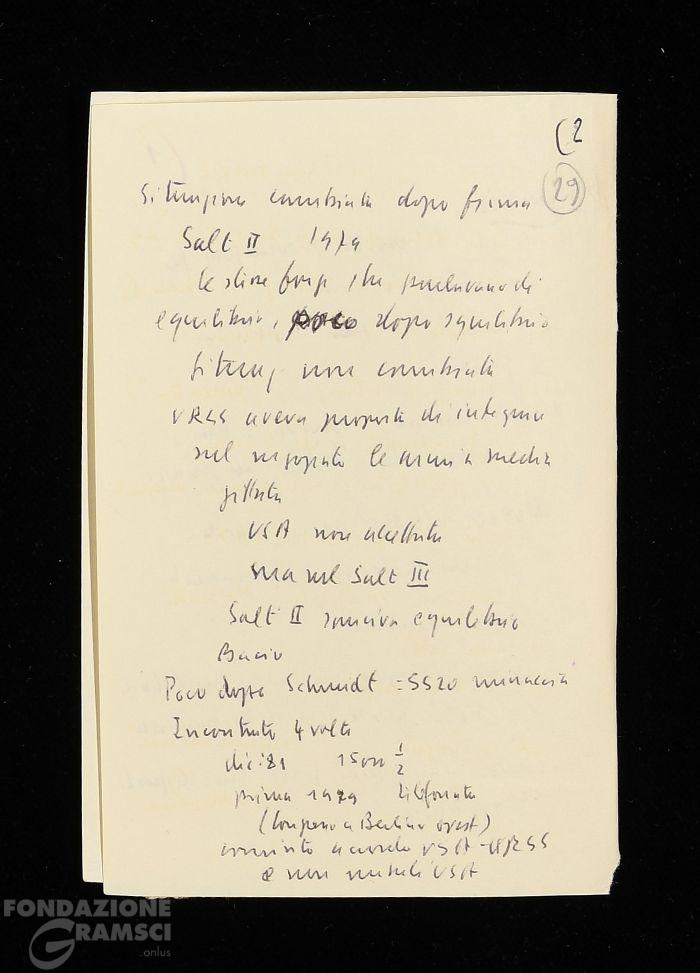 (2
29
Situazione cambiata dopo firma
Salt II 1979
le stesse forze che parlavano di
equilibrio, poco dopo squilibrio
situaz non cambiata
URSS aveva proposto di integrare
nel negoziato le armi a media
gittata
USA non accettato
ma nel Salt III
Salt II sanciva equilibrio
Bacio
Poco dopo Schmidt = SS20 minaccia
Incontrato 4 volte
dic. 81 1 1/2
prima 1979 telefonata
(Congresso a Berlino ovest)
convinto accordo USA-URSS
e non missili USA
FONDAZIONE
GRAMSCI
.onlus